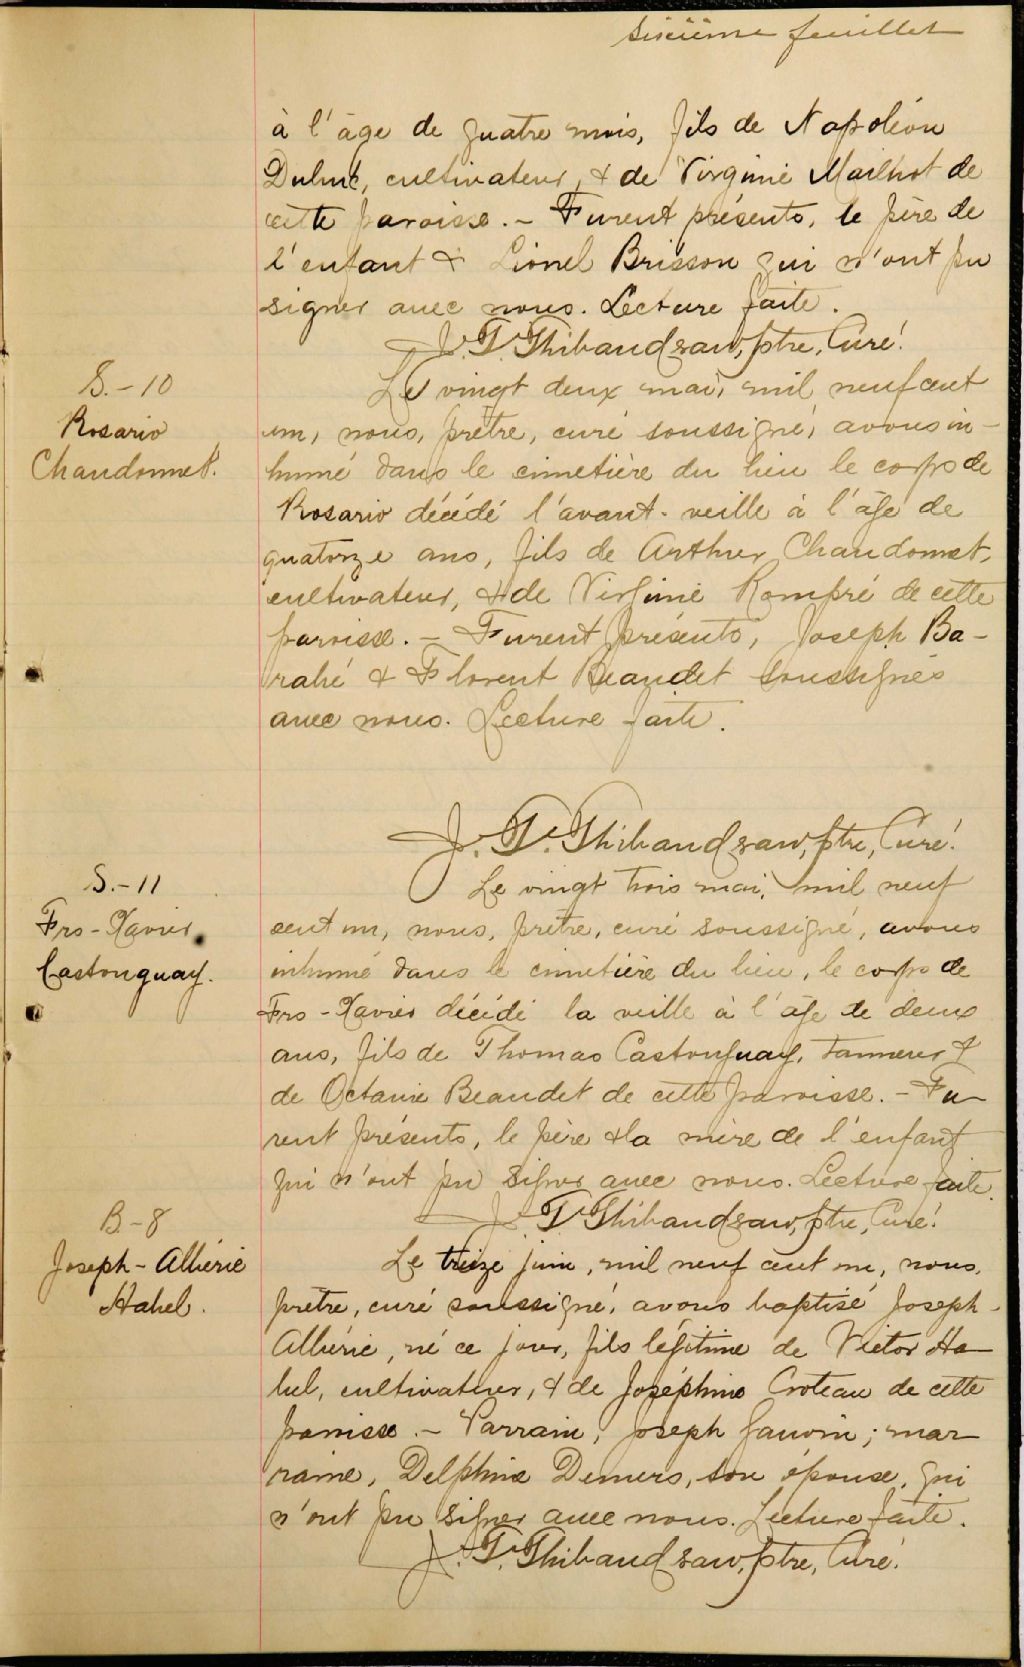 Sixième feuillet
à l'âge de quatre mois, fils de Napoléon
Dubuc, cultivateur, & de Virginie Mailhot de
cette paroisse. – Furent présents, le père de
l'enfant & Lionel Brisson qui n'ont pu
signer avec nous. Lecture faite.
Ptre, Curé.
S.-10
Rosario
Chandonnet.
Le vingt deux mai, mil neuf cent
un, nous, prêtre, curé soussigné, avons in-
humé dans le cimetière du lieu le corps de
Rosario décédé l'avant-veille à l'âge de
quatorze ans, fils de Arthur Chandonnet,
cultivateur, & de Virginie Rompré de cette
paroisse. – Furent présents, Joseph Ba-
& Florent Beaudet soussignés
avec nous. Lecture faite.
Ptre, Curé.
S.-11
Frs-Xavier
Castonguay.
Le vingt trois mai, mil neuf
cent un, nous, prêtre, curé soussigné, avons
inhumé dans le cimetière du lieu, le corps de
Frs-Xavier décédé la veille à l'âge de deux
ans, fils de Thomas Castonguay, tanneur &
de Octavie Beaudet de cette paroisse. – Fu-
rent présents, le père & la mère de l'enfant
qui n'ont pu signer avec nous. Lecture faite.
Ptre, Curé.
B.-8
Joseph-Albéric
Hahel.
Le treize juin, mil neuf cent un, nous,
prêtre, curé soussigné, avons baptisé Joseph-
Albéric, né ce jour, fils légitime de Victor Ha-
hel, cultivateur, & de Joséphine Croteau de cette
paroisse. – Parrain, Joseph Gauvin; mar-
raine, Delphine Demers, son épouse, qui
n'ont pu signer avec nous. Lecture faite.
Ptre, Curé.